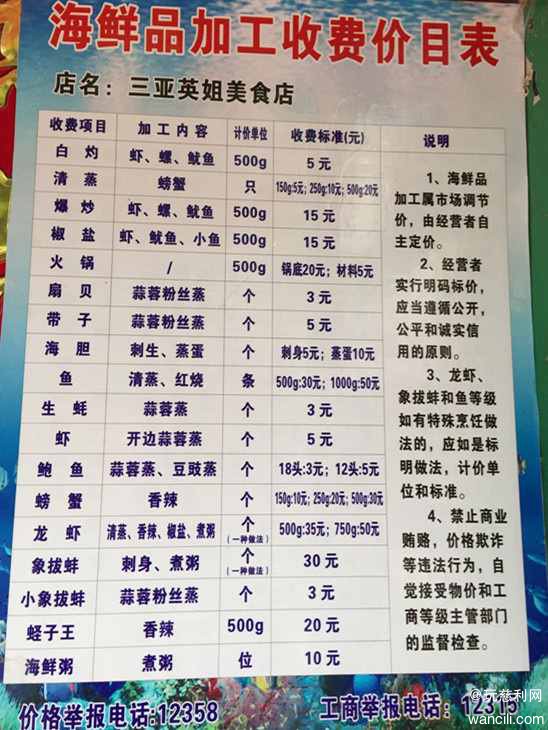 海鲜品加工收费价目表
店名：三亚英姐美食店
收费项目 加工内容 计价单位 收费标准(元) 说明
白灼 虾、螺、鱿鱼 500g 5元
清蒸 螃蟹 只 150g:5元; 250g:10元; 500g:20元
爆炒 虾、螺、鱿鱼 500g 15元
椒盐 虾、鱿鱼、小鱼 500g 15元
火锅 / 500g 锅底20元; 材料5元
扇贝 蒜蓉粉丝蒸 个 3元
带子 蒜蓉粉丝蒸 个 5元
海胆 刺生、蒸蛋 个 刺身5元; 蒸蛋10元
鱼 清蒸、红烧 条 500g:30元; 1000g:50元
生蚝 蒜蓉蒸 个 3元
虾 开边蒜蓉蒸 个 5元
鲍鱼 蒜蓉蒸、豆豉蒸 个 18头:3元; 12头:5元
螃蟹 香辣 个 150g:10元; 250g:20元; 500g:30元
龙虾 清蒸、香辣、椒盐、煮粥 个(一种做法) 500g:35元; 750g:50元
象拔蚌 刺身、煮粥 个(一种做法) 30元
小象拔蚌 蒜蓉粉丝蒸 个 3元
蛏子王 香辣 500g 20元
海鲜粥 煮粥 位 10元
1、海鲜品
加工属市场调节
价，由经营者自
主定价。
2、经营者
实行明码标价，
应当遵循公开，
公平和诚实信
用的原则。
3、龙虾、
象拔蚌和鱼等级
如有特殊烹饪做
法的，应如是标
明做法，计价单
位和标准。
4、禁止商业
贿赂，价格欺诈
等违法行为，自
觉接受物价和工
商等级主管部门
的监督检查。
价格举报电话:12358 工商举报电话：12315
@玩慈利网
wancili.com